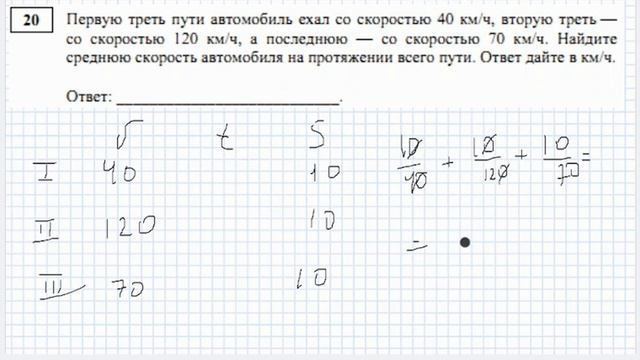 20
Первую треть пути автомобиль ехал со скоростью 40 км/ч, вторую треть —
со скоростью 120 км/ч, а последнюю — со скоростью 70 км/ч. Найдите
среднюю скорость автомобиля на протяжении всего пути. Ответ дайте в км/ч.
Ответ: ___________________________.
V t S
I 40 10
II 120 10
III 70 10
10/40 + 10/120 + 10/70 =
=